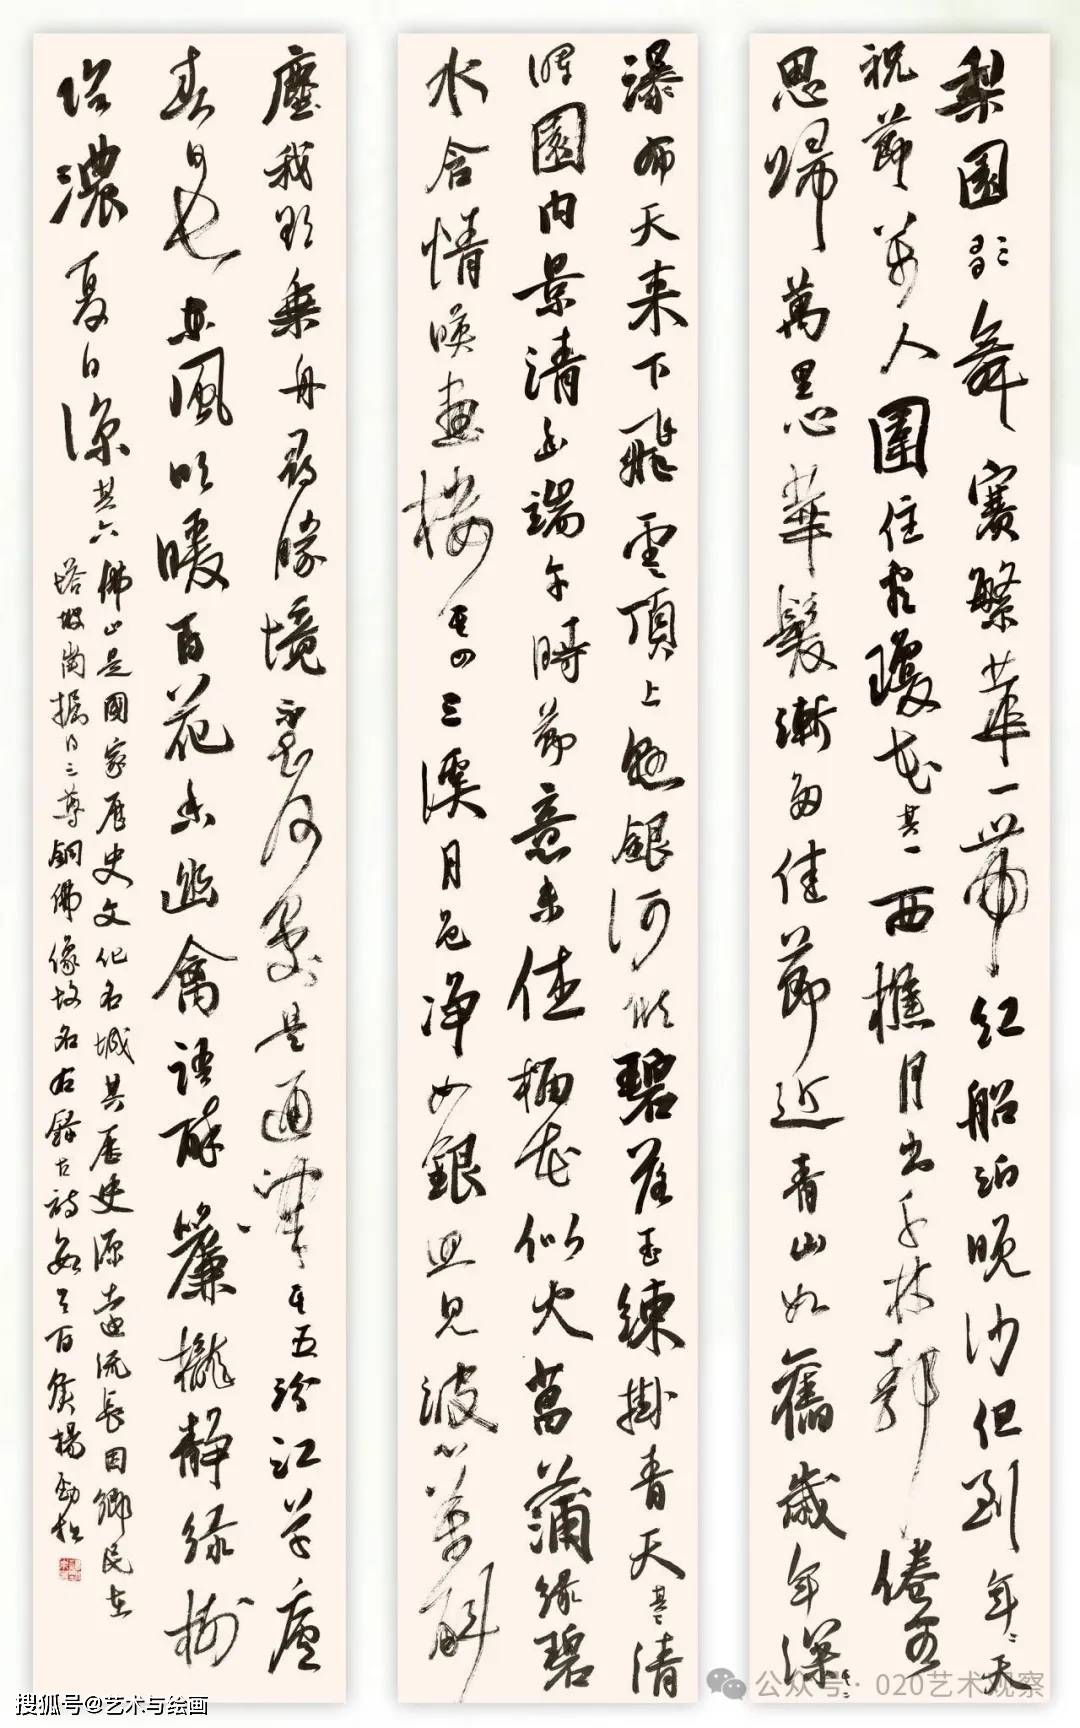 梨園歌舞賽繁華一帶紅船泊晚沙但到年年天
祝節萬人圍住看瓊花其一西樵月出千林靜倦客
思歸萬里心華髮漸多佳節近青山如舊歲年深其二
瀑布天來下飛雲頂上懸銀河傾碧玉練掛青天其三清
暉園內景清幽端午時節意未榴花似火菖蒲綠碧
水含情映畫樓其四三溪月色淨如銀且見波心萬斛
塵我欲乘舟尋勝境不知何處是通津其五汾江草廬
春日長東風吹暖百花香幽禽語醉簾櫳靜綠樹
陰濃夏日涼其六
佛山是國家歷史文化名城其歷史源遠流長因鄉民在
塔坡崗掘得三尊銅佛像故名右錄古詩數首百侯楊勁松
搜狐号@艺术与绘画
公众号·020艺术观察